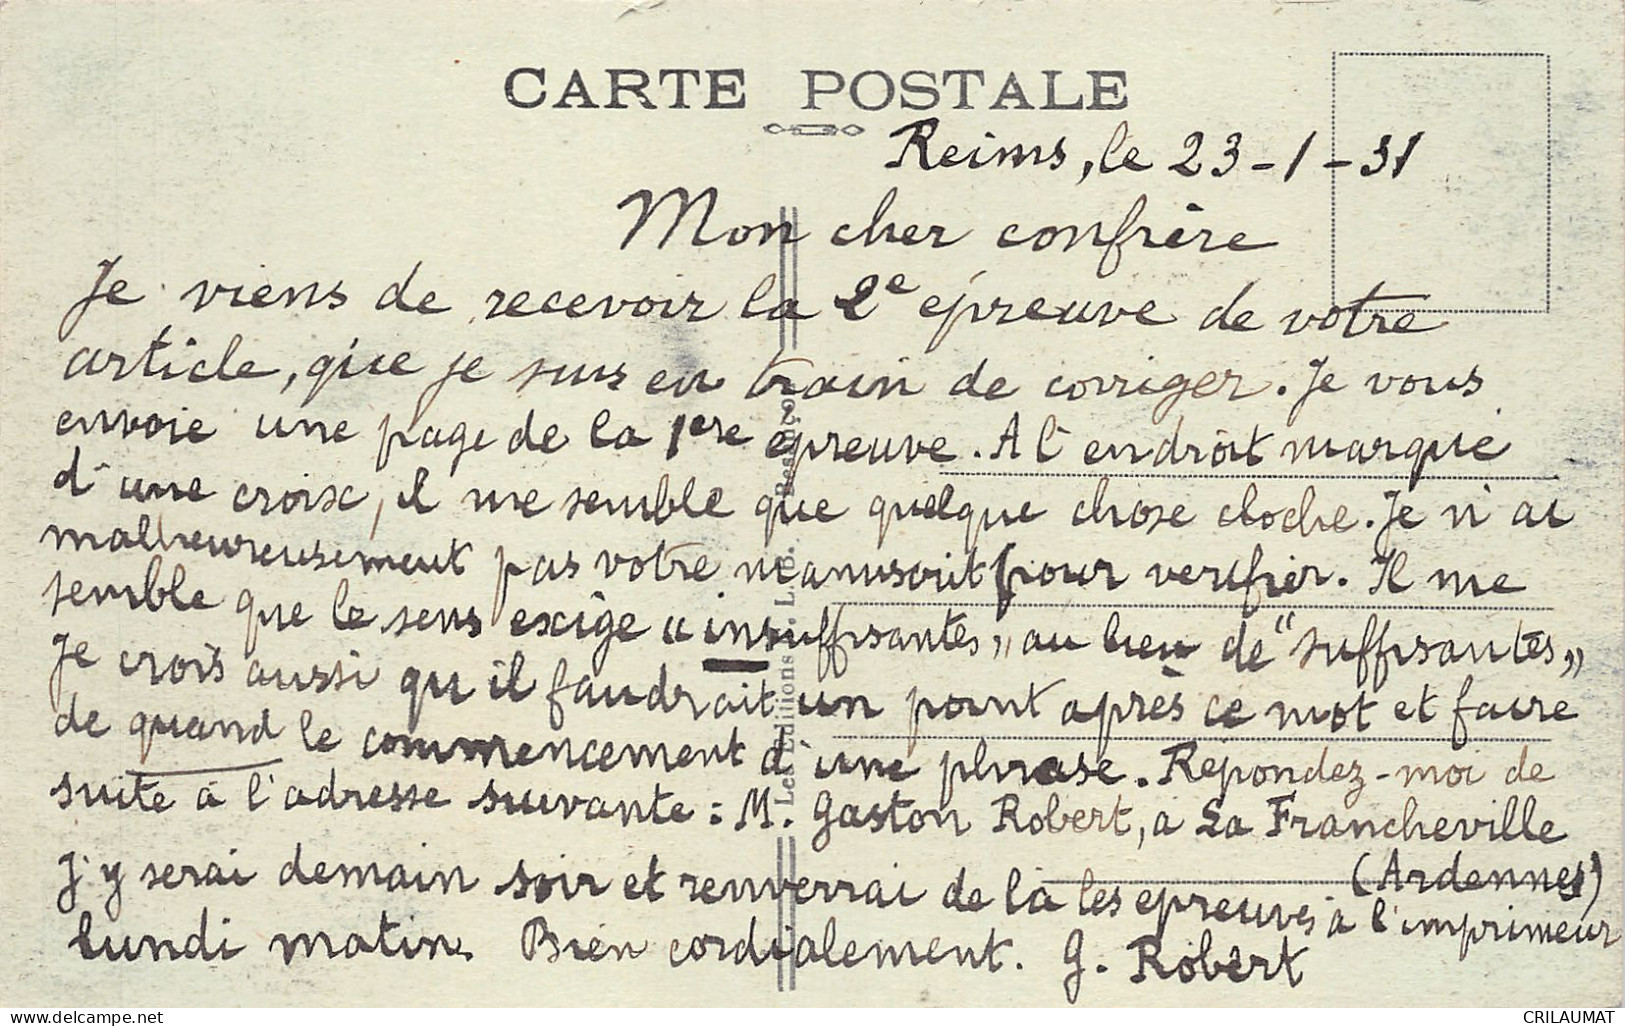 CARTE POSTALE
Reims, le 23-1-31
Mon cher confrère
Je viens de recevoir la 2e épreuve de votre
article, que je suis en train de corriger. Je vous
envoie une page de la 1ere épreuve. A l'endroit marqué
d'une croix, il me semble que quelque chose cloche. Je n'ai
malheureusement pas votre manuscrit pour verifier. Il me
semble que le sens exige "insuffisantes" au lieu de "suffisantes"
Je crois aussi qu'il faudrait un point après ce mot et faire
de quand le commencement d'une phrase. Repondez-moi de
suite à l'adresse suivante : M. Gaston Robert, à La Francheville
(Ardennes)
J'y serai demain soir et renverrai de là les epreuves à l'imprimeur
lundi matin. Bien cordialement. G. Robert
Les Editions L. B. Besançon
www.delcampe.net
CRILAUMAT